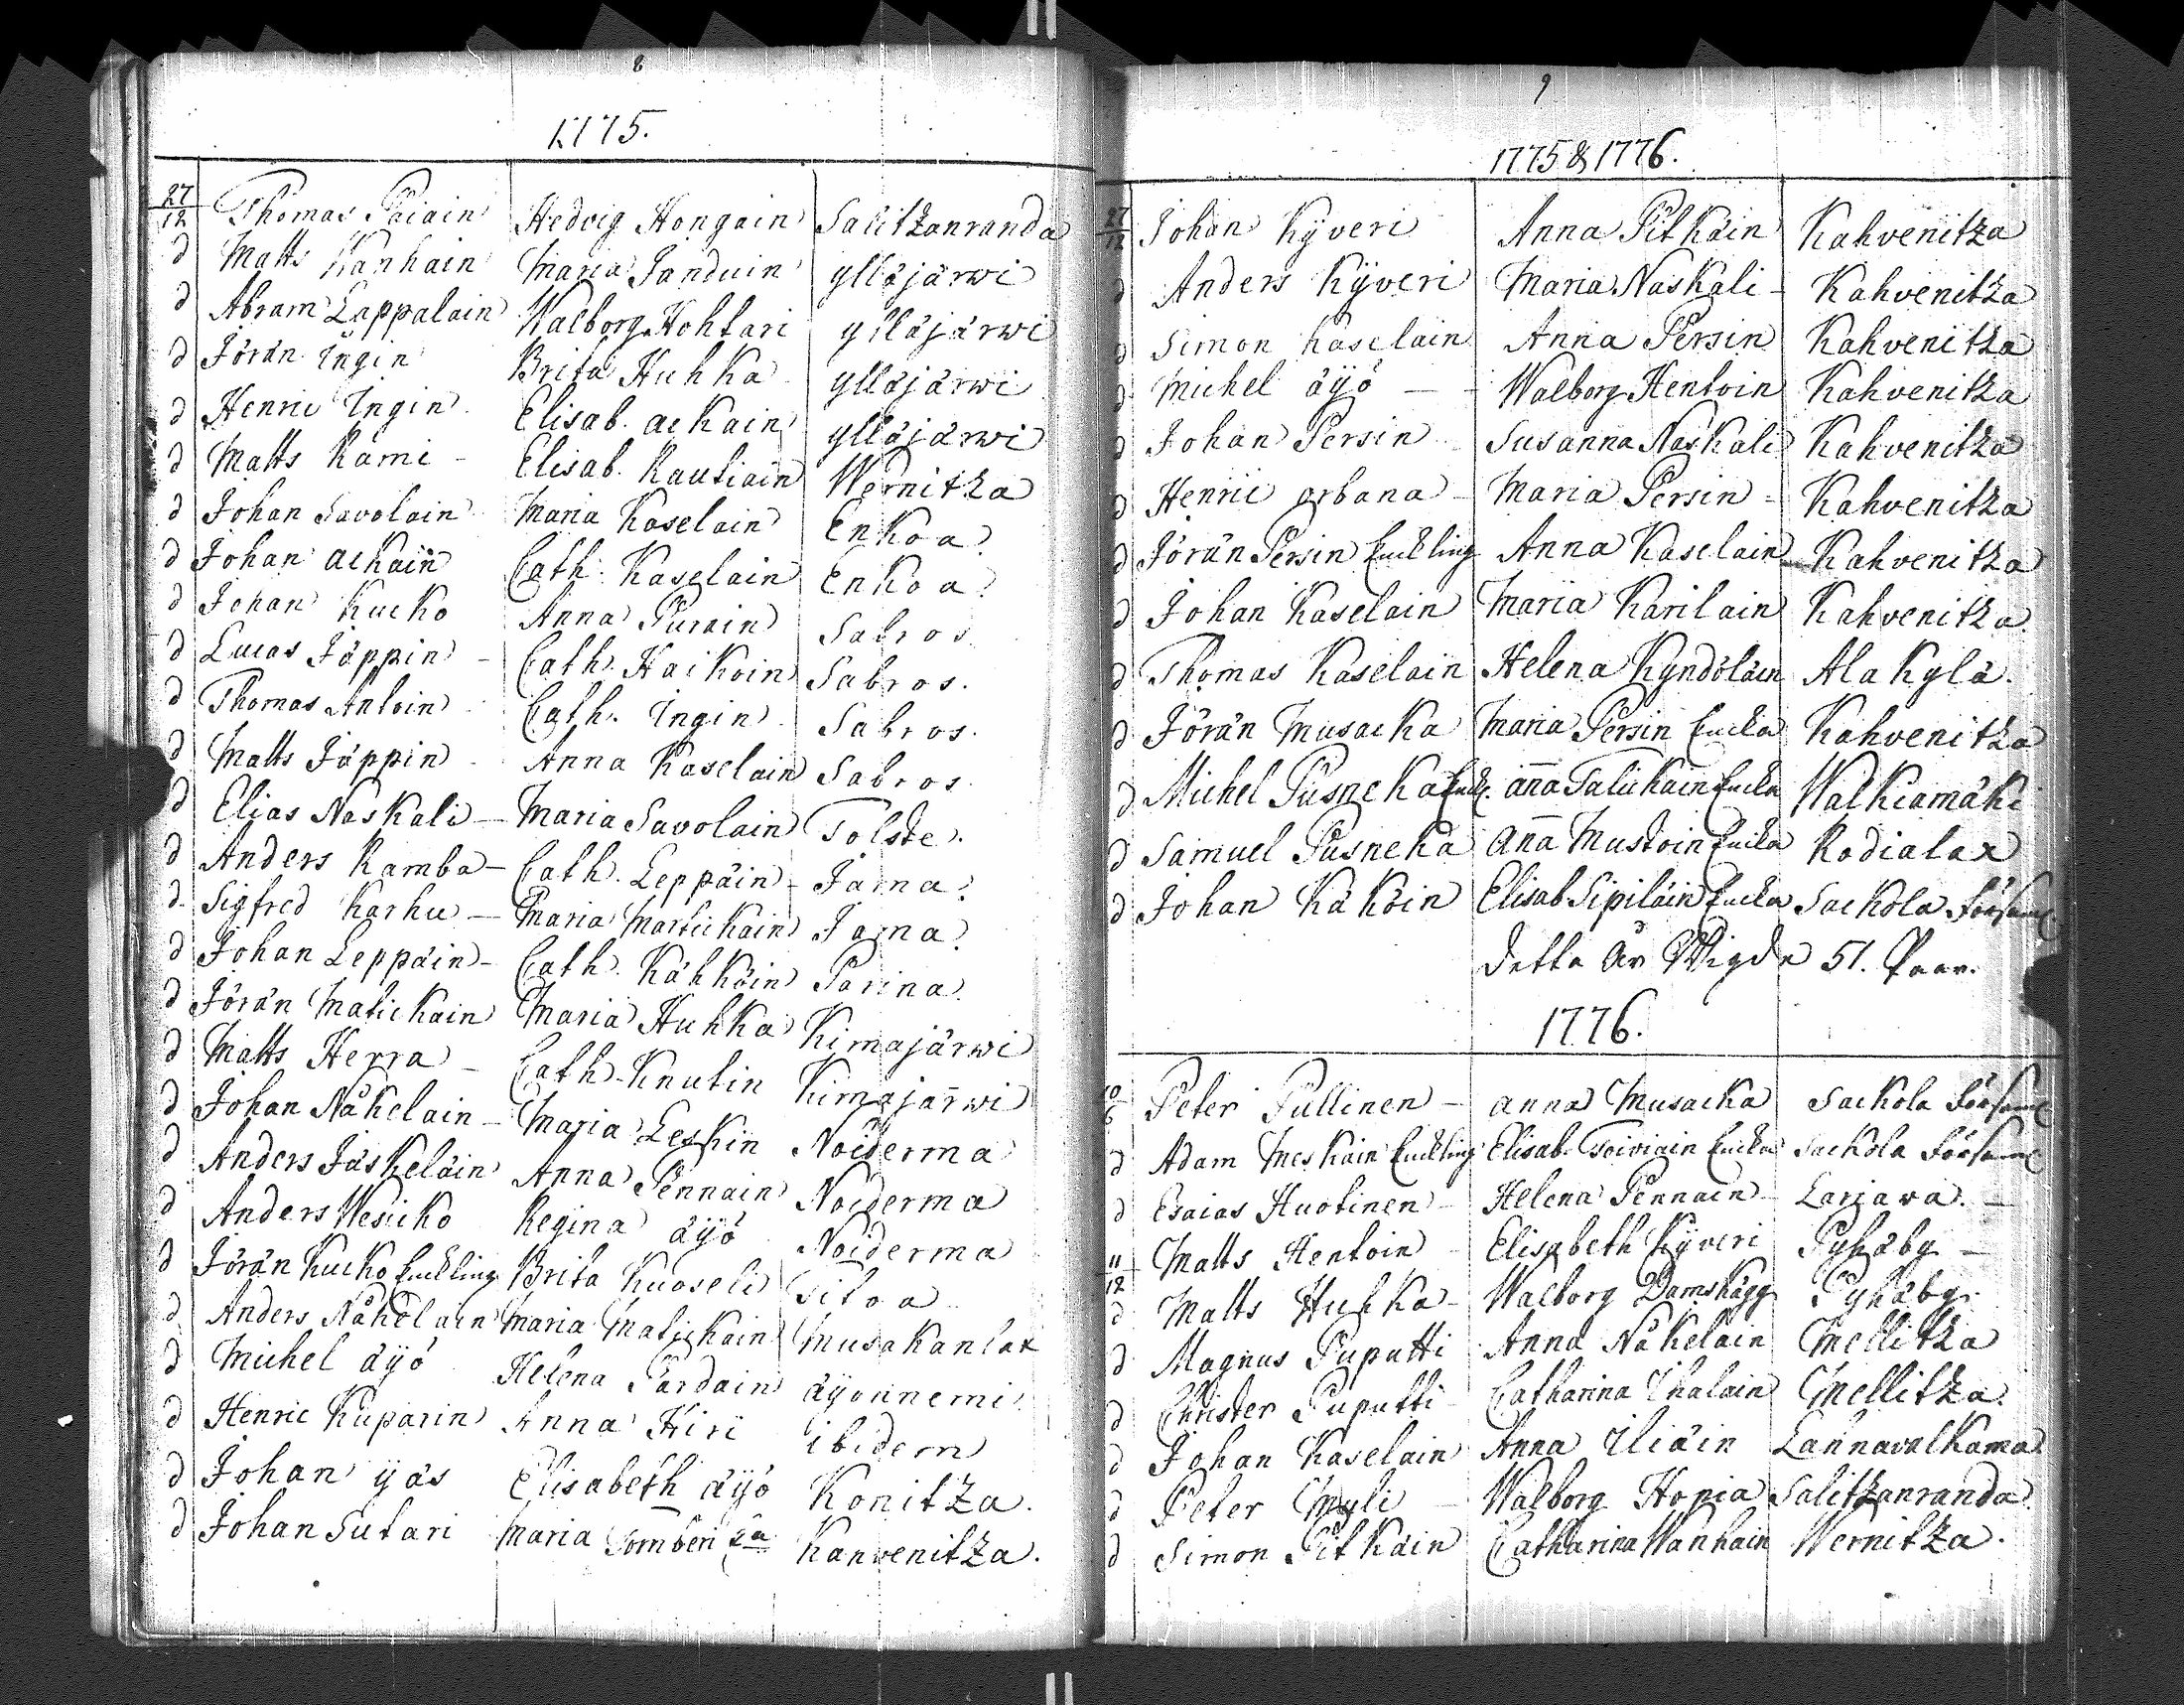 8
1775.
27/12 Thomas Paiain Hedvig Hongain Salitzanranda
d Matts Wanhain Maria Janduin ylläjärwi
d Abram Lappalain Walborg Hohtari ylläjärwi
d Jöran Ingin Brita Huhka ylläjärwi
d Henric Ingin Elisab. Ackain ylläjärwi
d Matts Rämi - Elisab. Rautiain Wernitza
d Johan Savolain Maria Kaselain Enkoa
d Johan Ackain Cath. Kaselain Enkoa
d Johan Kucko Anna Purain Sabros
d Lucas Jäppin - Cath. Haikoin Sabros.
d Thomas Antoin Cath. Ingin Sabros.
d Matts Jäppin Anna Kaselain Sabros.
d Elias Naskali - Maria Savolain Tolste.
d Anders Ramba - Cath. Leppäin - Jama
d Sigfred Karhu - Maria Martickain Jama
d Johan Leppäin - Cath. Kähköin Parina
d Jöran Matickain Maria Huhka Kimajärwi
d Matts Herra - Cath. Knutin Kimajärwi
d Johan Näkelain - Maria Leskin Noiderma
d Anders Jäskeläin Anna Pennain Noiderma
d Anders Wesicko Regina äyö Noiderma
d Jöran Kucko Enckling Brita Kuoseli Sitoa
d Anders Näkölain Maria Matickain Musakanlax
d Michel äyö Helena Pärdain äyönnemi
d Henric Kuparin Anna Hiri ibidem
d Johan yäs Elisabeth äyö Konitza.
d Johan Sutari Maria Kanvenitza.
9
1775 & 1776.
27/12 Johan Kyveri Anna Pitkäin Kahvenitza
d Anders Kyveri Maria Naskali - Kahvenitza
d Simon Kaselain Anna Persin Kahvenitza
d Michel äyö - Walborg Hentoin Kahvenitza
d Johan Persin Susanna Naskali Kahvenitza
d Henric orbana - Maria Persin - Kahvenitza
d Jöran Persin Enckling Anna Kaselain Kahvenitza
d Johan Kaselain Maria Karilain Kahvenitza
d Thomas Kaselain Helena Kyndöläin Alakylä.
d Jöran Musacka Maria Persin Encka Kahvenitza
d Michel Pusneka Enck. Anna Talickain Encka Walkiamäki
d Samuel Pusneka Anna Mustoin Encka Rodialax
d Johan Käköin Elisab Sipiläin Encka Sackola Församl
Detta År Wigde 51. Paar.
1776.
10/6 Peter Pullinen - Anna Musacka Sackola Församl
d Adam Meskäin Enckling Elisab. Toiviain Encka Sackola Församl
d Esaias Huotinen - Helena Pennain - Larjava. -
11/12 Matts Hentoin - Elisabeth Kyveri Pyhäby -
d Matts Huhka - Walborg Damskägg Pyhäby.
d Magnus Puputti Anna Näkelain Mellitza
d Christer Puputti Catharina Ihalain Mellitza
d Johan Kaselain Anna Iliäin Lannavalkama
d Peter Myli - Walborg Hopia Salitzanranda
d Simon Pitkäin Catharina Wanhain Wernitza.